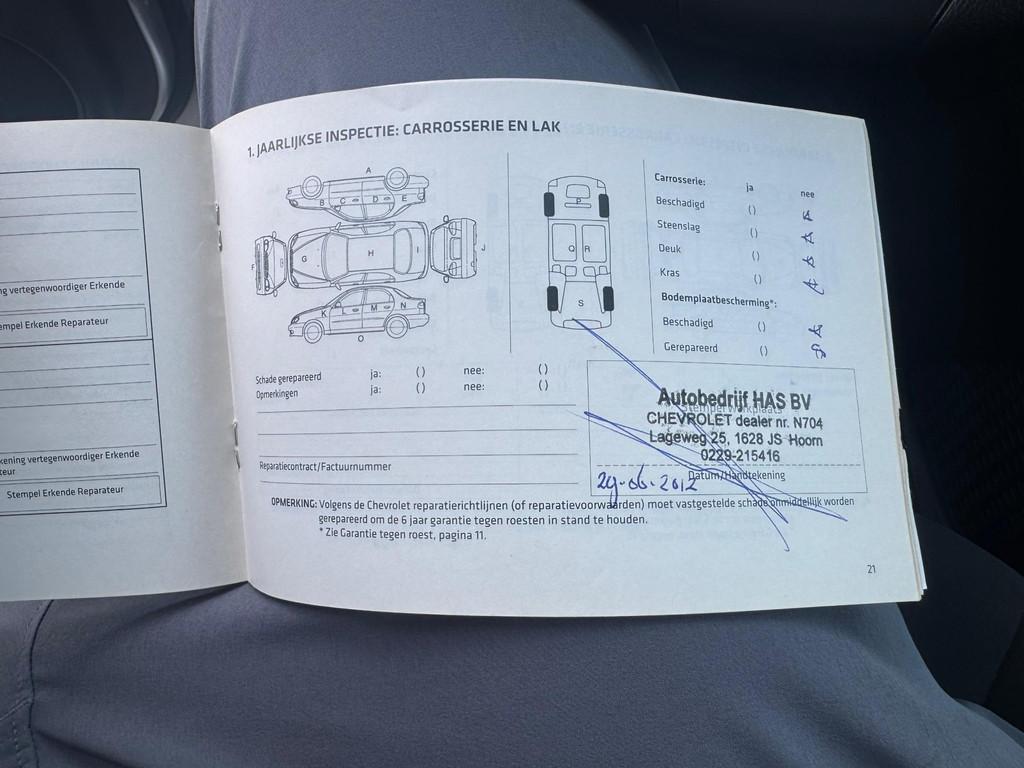 ng vertegenwoordiger Erkende
empel Erkende Reparateur
kening vertegenwoordiger Erkende
teur
Stempel Erkende Reparateur
1. JAARLIJKSE INSPECTIE: CARROSSERIE EN LAK
A
B C D E
F G H I J
K L M N
O
P
Q R
S
Carrosserie: ja nee
Beschadigd ( )
Steenslag ( )
Deuk ( )
Kras ( )
Bodemplaatbescherming*:
Beschadigd ( )
Gerepareerd ( )
Schade gerepareerd ja: ( ) nee: ( )
Opmerkingen ja: ( ) nee: ( )
Reparatiecontract/Factuurnummer
Autobedrijf HAS BV
Stempel werkplaats
CHEVROLET dealer nr. N704
Lageweg 25, 1628 JS Hoorn
0229-215416
29-06-2012
Datum/Handtekening
OPMERKING: Volgens de Chevrolet reparatierichtlijnen (of reparatievoorwaarden) moet vastgestelde schade onmiddellijk worden
gerepareerd om de 6 jaar garantie tegen roesten in stand te houden.
* Zie Garantie tegen roest, pagina 11.
21